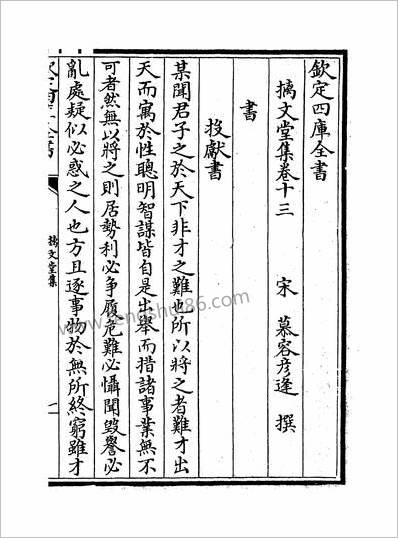 欽定四庫全書
摛文堂集卷十三
宋 慕容彦逢 撰
書
投獻書
某聞君子之於天下非才之難也所以將之者難才出
天而寓於性聰明智謀皆自是出舉而措諸事業無不
可者然無以將之則居勢利必争履危難必懾聞毁譽必
亂處疑似必惑之人也方且逐事物於無所終窮雖才
摛文堂集
一